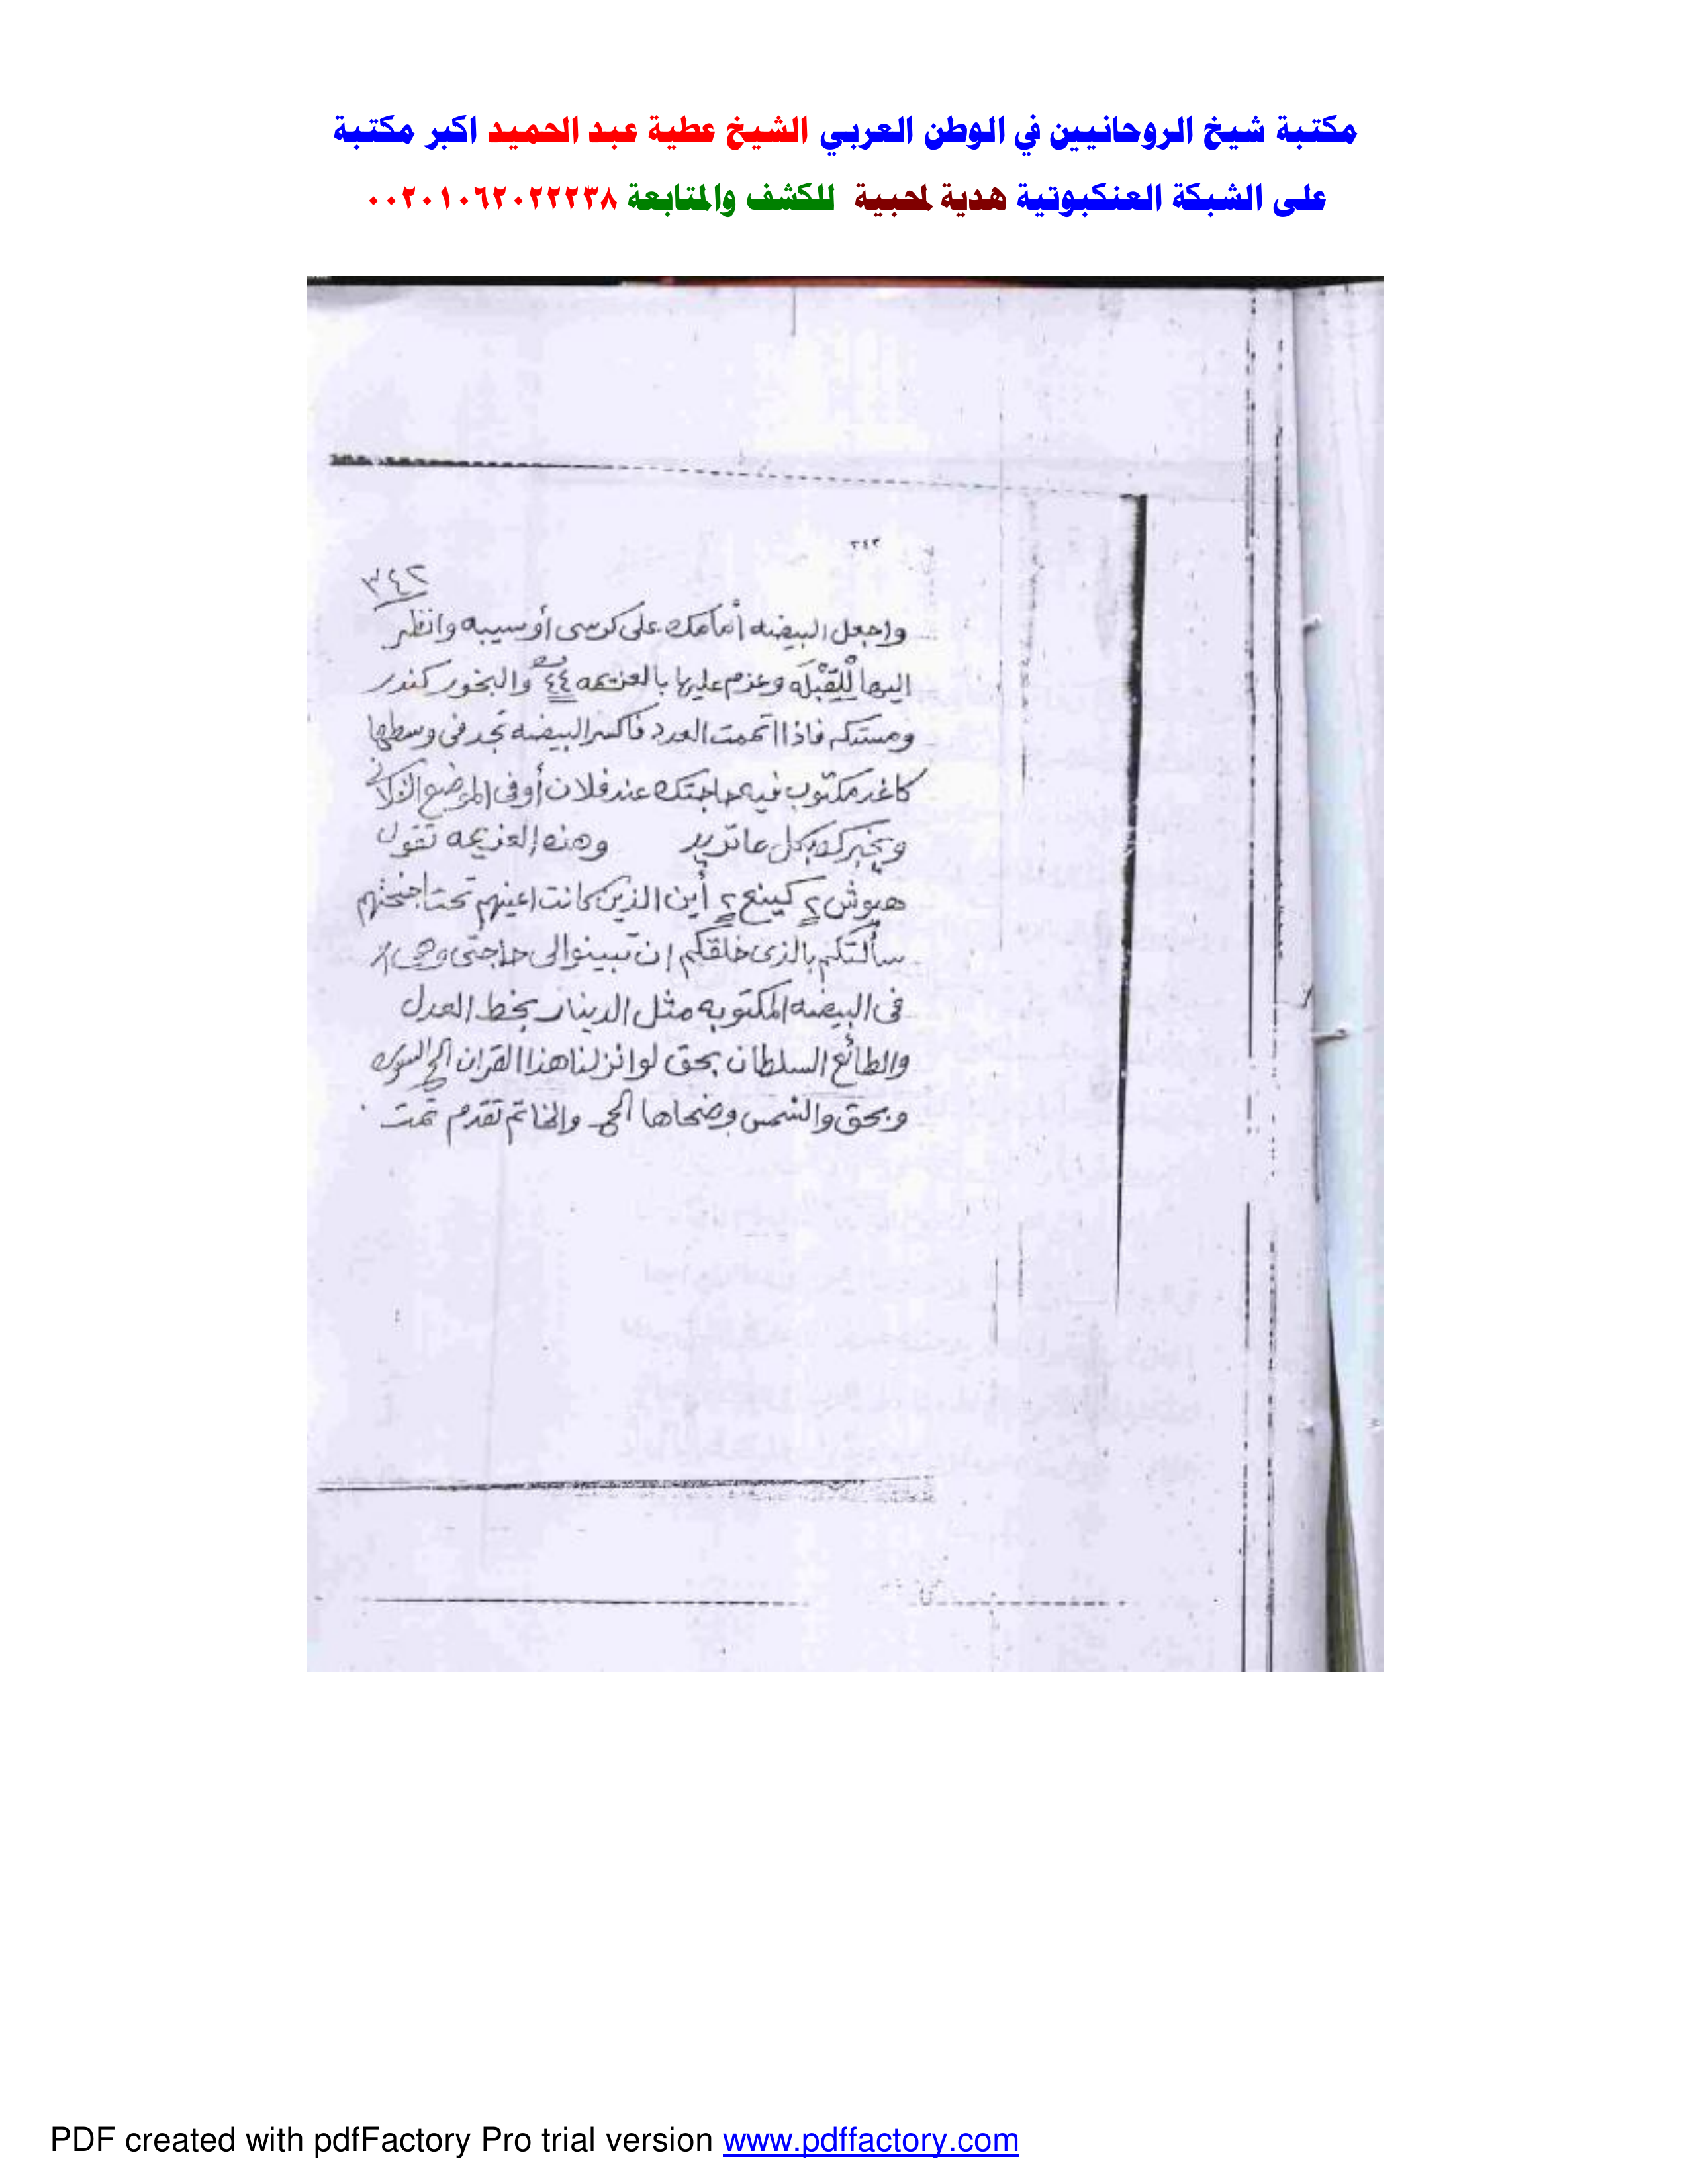 مكتبة شيخ الروحانيين في الوطن العربي الشيخ عطية عبد الحميد اكبر مكتبة
على الشبكة العنكبوتية هدية لمحبية للكشف والمتابعة ٠٠٢٠١٠٦٢٠٢٢٢٣٨
٣٤٢
٣٤٢
واجعل البيضه أمامك على كرسى أو سيبه وانظر
اليها للقبله وعزم عليها بالعزيمه ٤٤ والبخور كندر
ومستكه فاذا اتممت العدد فاكسر البيضه تجد فى وسطها
كاغد مكتوب فيه حاجتك عند فلان أو فى الموضع الفلانى
ويخبرك بكل ما تريد وهذه العزيمه تقول
هيوش ٢ كينع ٢ أين الذين كانت اعينهم تحت اجنحتهم
سألتكم بالذى خلقكم ان تبينوا لى حاجتى
فى البيضه المكتوبه مثل الدينار بخط العدل
والطائع السلطان بحق لو انزلنا هذا القران الخ السوره
وبحق والشمس وضحاها الخ والخاتم تقدم تمت
PDF created with pdfFactory Pro trial version www.pdffactory.com